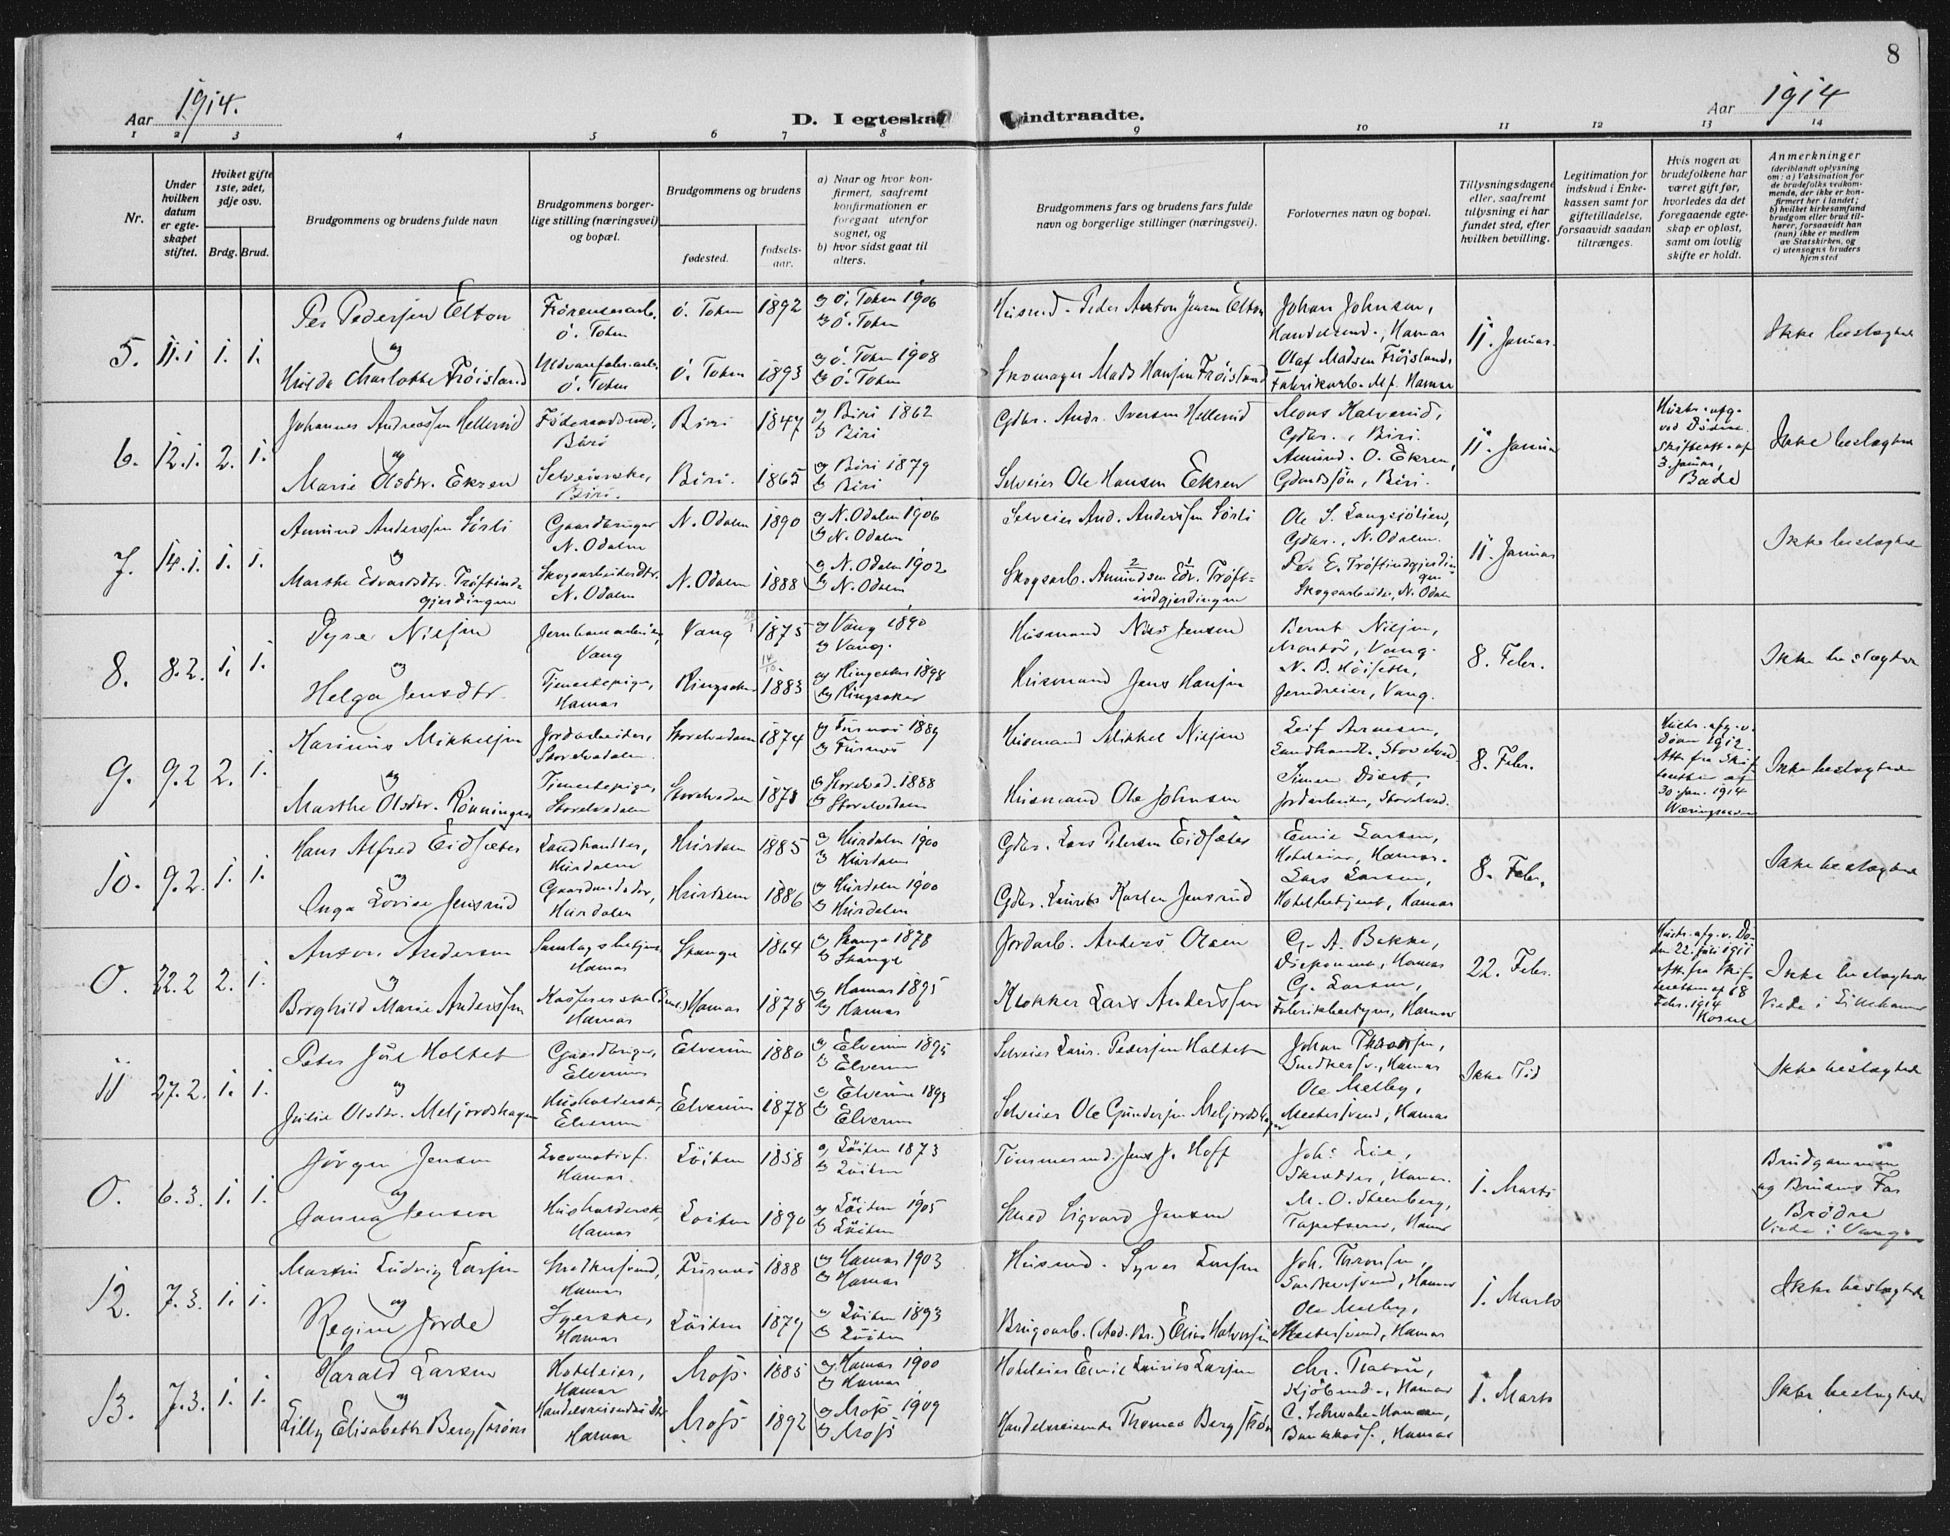 8
Aar 1914.
D. I egteska
indtraadte.
Aar 1914
1 2 3 4 5 6 7 8 9 10 11 12 13 14
Nr.
Under hvilken datum er egteskapet stiftet.
Hviket gifte 1ste, 2det, 3dje osv.
Brdg. Brud.
Brudgommens og brudens fulde navn
Brudgommens borgerlige stilling (næringsvei) og bopæl.
Brudgommens og brudens
fødested.
fødsels-aar.
a) Naar og hvor konfirmert, saafremt konfirmationen er foregaat utenfor sognet, og
b) hvor sidst gaat til alters.
Brudgommens fars og brudens fars fulde navn og borgerlige stillinger (næringsvei).
Forlovernes navn og bopæl.
Tillysningsdagene eller, saafremt tillysning ei har fundet sted, efter hvilken bevilling.
Legitimation for indskud i Enkekassen samt for giftetilladelse, forsaavidt saadan tiltrænges.
Hvis nogen av brudefolkene har været gift før, hvorledes da det foregaaende egteskap er opløst, samt om lovlig skifte er holdt.
Anmerkninger
(deriblandt oplysning om: a) Vaksination for de brudefolks vedkommende, der ikke er konfirmert her i landet;
b) hvilket kirkesamfund brudgom eller brud tilhører, forsaavidt han (hun) ikke er medlem av Statskirken, og
c) utensogns bruders hjemsted
5. 11.1 1. 1.
Per Pedersen Elton
og
Hulda Charlotte Frøisland
Ø. Toten
Ø. Toten
Ø. Toten 1892
Ø. Toten 1893
a) Ø. Toten 1906
b) Ø. Toten
a) Ø. Toten 1908
b) Ø. Toten
Husmd. Peder Anton Elton
Skomager Mads Hansen Frøisland
Johan Johnsen,
Hamar
Olaf Madsen Frøisland,
Fabrikarb. Hamar
11. Januar.
Ikke beslægtede
6. 12.1. 2. 1.
Johannes Andreassen Hellerud
og
Marie Olsdtr. Ekren
Føderaadsmd., Biri
Biri.
Biri 1847
Biri. 1865
a) Biri 1862
b) Biri
a) Biri 1879
b) Biri
Gdbr. Andr. Iversen Hellerud
Selveier Ole Hansen Ekren
Gdbr., Biri.
Amund. O. Ekren,
Gaardssøn, Biri.
11. Januar
3. Januar,
Ikke beslægtede
7. 14.1. 1. 1.
Amund Anderssen Sørli
og
Marthe Edvardsdtr. Trøftindgjerdingen
Gaardbruger
N. Odalen
Skogsarbeiderdtr.
N. Odalen
N. Odalen 1890
N. Odalen 1888
a) N. Odalen 1906
b) N. Odalen
a) N. Odalen 1902
b) N. Odalen
Selveier And. Anderssen Sørli
Skogsarb. Amundsen Edv. Trøftindgjerdingen
Gdbr., N. Odalen.
Per E. Trøftindgjerdingen
Skogsarbeider, N. Odalen
11. Januar
Ikke beslægtede
8. 8.2. 1. 1.
Nilsen
og
Helga Jensdtr.
Vang
Tjenestepige,
Hamar
Vang 1875
Ringsaker 1883
a) Vang 1890
b) Vang.
a) Ringsaker 1898
b) Ringsaker
Husmand Nils Jensen
Husmand Jens Hansen
Bernt Nilsen,
Montør, Vang.
N. B. Høiseth,
Vang.
8. Febr.
Ikke beslægtede
9. 9.2 2. 1.
Karinus Mikkelsen
og
Marthe Olsdtr. Rønningen
Jordarbeider,
Storelvedalen.
Tjenestepige,
Storelvedalen
Storelvedalen 1874
Storelvedalen 1873
a) Furnes 1889
b) Furnes
a) Storelved. 1888
b) Storelvedalen
Husmand Mikkel Nilsen
Husmand Ole Johnsen
Leif Arnesen,
Landhandl., Storelved.
Jordarbeider, Storelved.
8. Febr.
30. jan. 1914
Ikke beslægtede
10. 9.2. 1. 1.
Hans Alfred Eidsæter
og
Inga Lovise Jensrud
Landhandler,
Hurdalen
Hurdalen
Hurdalen 1885
Hurdalen 1886
a) Hurdalen 1900
b) Hurdalen
a) Hurdalen 1900
b) Hurdalen
Gdbr. Lars Petersen Eidsæter
Gdbr. Laurits Karlsen Jensrud
Emil Larsen,
Hoteleier, Hamar.
Lars Larsen,
Hotelbetjent, Hamar
8. Febr.
Ikke beslægtede
0. 22.2 2. 1.
Anton Andersen
og
Borghild Marie Anderssen
Hamar
Kassererske
Hamar
Stange 1864
Hamar 1878
a) Stange 1878
b) Stange
a) Hamar 1895
b) Hamar
Jordarb. Anders Olsen
Klokker Lars Anderssen
G. A. Bakke,
Disponent, Hamar
G. Larsen,
Hamar
22. Febr.
22. juli 1911
Febr. 1914
Ikke beslægtede
Viede i Lillehammer
11 27.2. 1. 1.
Peter Joel Holtet
og
Julie Olsdtr. Meljordshagen
Gaardbruger,
Elverum
Husholderske,
Elverum
Elverum 1880
Elverum 1878
a) Elverum 1895
b) Elverum
a) Elverum 1893
b) Elverum
Selveier Lars Pedersen Holtet
Selveier Ole Gundersen Meljordshagen
Johan Thronsen,
Snedkersv., Hamar
Ole Melby,
Mestersvend, Hamar
Ikke Tid
Ikke beslægtede
0. 6.3. 1. 1.
Jørgen Jensen
og
Janna Jensen
Locomotivf.
Hamar.
Husholderske,
Hamar
Løiten 1858
Løiten 1890
a) Løiten 1873
b) Løiten
a) Løiten 1905
b) Løiten
Tømmermd. Jens J. Hoff
Smed Sigvard Jensen
Joh. Lie,
Skrædder, Hamar.
M. O. Steenberg,
Tapetserer, Hamar
1. Marts
Brudgommen
og Brudens Far
Brødre
Viede i Vang.
12. 7.3. 1. 1.
Martin Ludvig Larsen
og
Regine Jorde
Snedkersvend,
Hamar
Syerske,
Hamar
Furnes 1888
Løiten 1879
a) Hamar 1903
b) Hamar
a) Løiten 1893
b) Løiten
Husmd. Syver Larsen
Brugsarb. (Ad. Br.) Elias Halvorsen
Joh. Thronsen,
Snedkersvend, Hamar
Ole Melby,
Mestersvend, Hamar
1. Marts
Ikke beslægtede
13. 7.3. 1. 1.
Harald Larsen
og
Lilly Elisabeth Bergstrøm
Hoteleier,
Hamar
Handelsreisendes dtr.
Hamar
Moss 1885
Moss 1892
a) Hamar 1900
b) Hamar
a) Moss 1909
b) Moss
Hoteleier Emil Laurits Larsen
Handelsreisende Thomas Bergstrøm
Kjøbmd., Hamar
Hamar
1. Marts
Ikke beslægtede